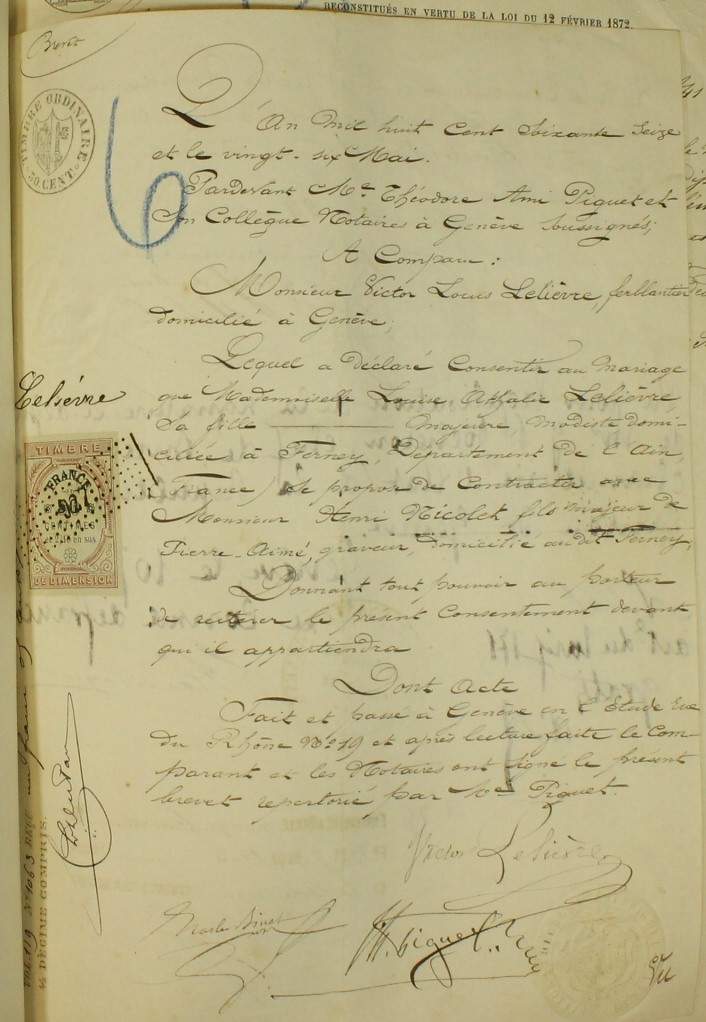 RECONSTITUÉS EN VERTU DE LA LOI DU 12 FÉVRIER 1872.
Brevet
TIMBRE ORDINAIRE
50 CENT.
6
L'An mil huit cent soixante seize
et le vingt-six Mai.
Pardevant Me. Théodore Ami Piguet et
son Collègue Notaires à Genève soussignés;
A Comparu :
Monsieur Victor Louis Lelièvre, ferblantier
domicilié à Genève;
Lequel a déclaré consentir au mariage
que Mademoiselle Louise Athalie Lelièvre,
sa fille majeure, modiste domi-
ciliée à Ferney, Département de l'Ain
(France) se propose de contracter avec
Monsieur Henri Nicolet fils majeur de
Pierre-Aimé, graveur, domicilié audit Ferney,
Donnant tout pouvoir au porteur
de réitérer le présent consentement devant
qui il appartiendra
Dont Acte
Fait et passé à Genève en l'Etude Rue
du Rhône No. 19 et après lecture faite le Com-
parant et les Notaires ont signé le présent
brevet répertorié par Me. Piguet.
Victor Lelièvre
Binet
Piguet
Lelièvre
TIMBRE
FRANCE
DE DIMENSION
½ DÉCIME COMPRIS.